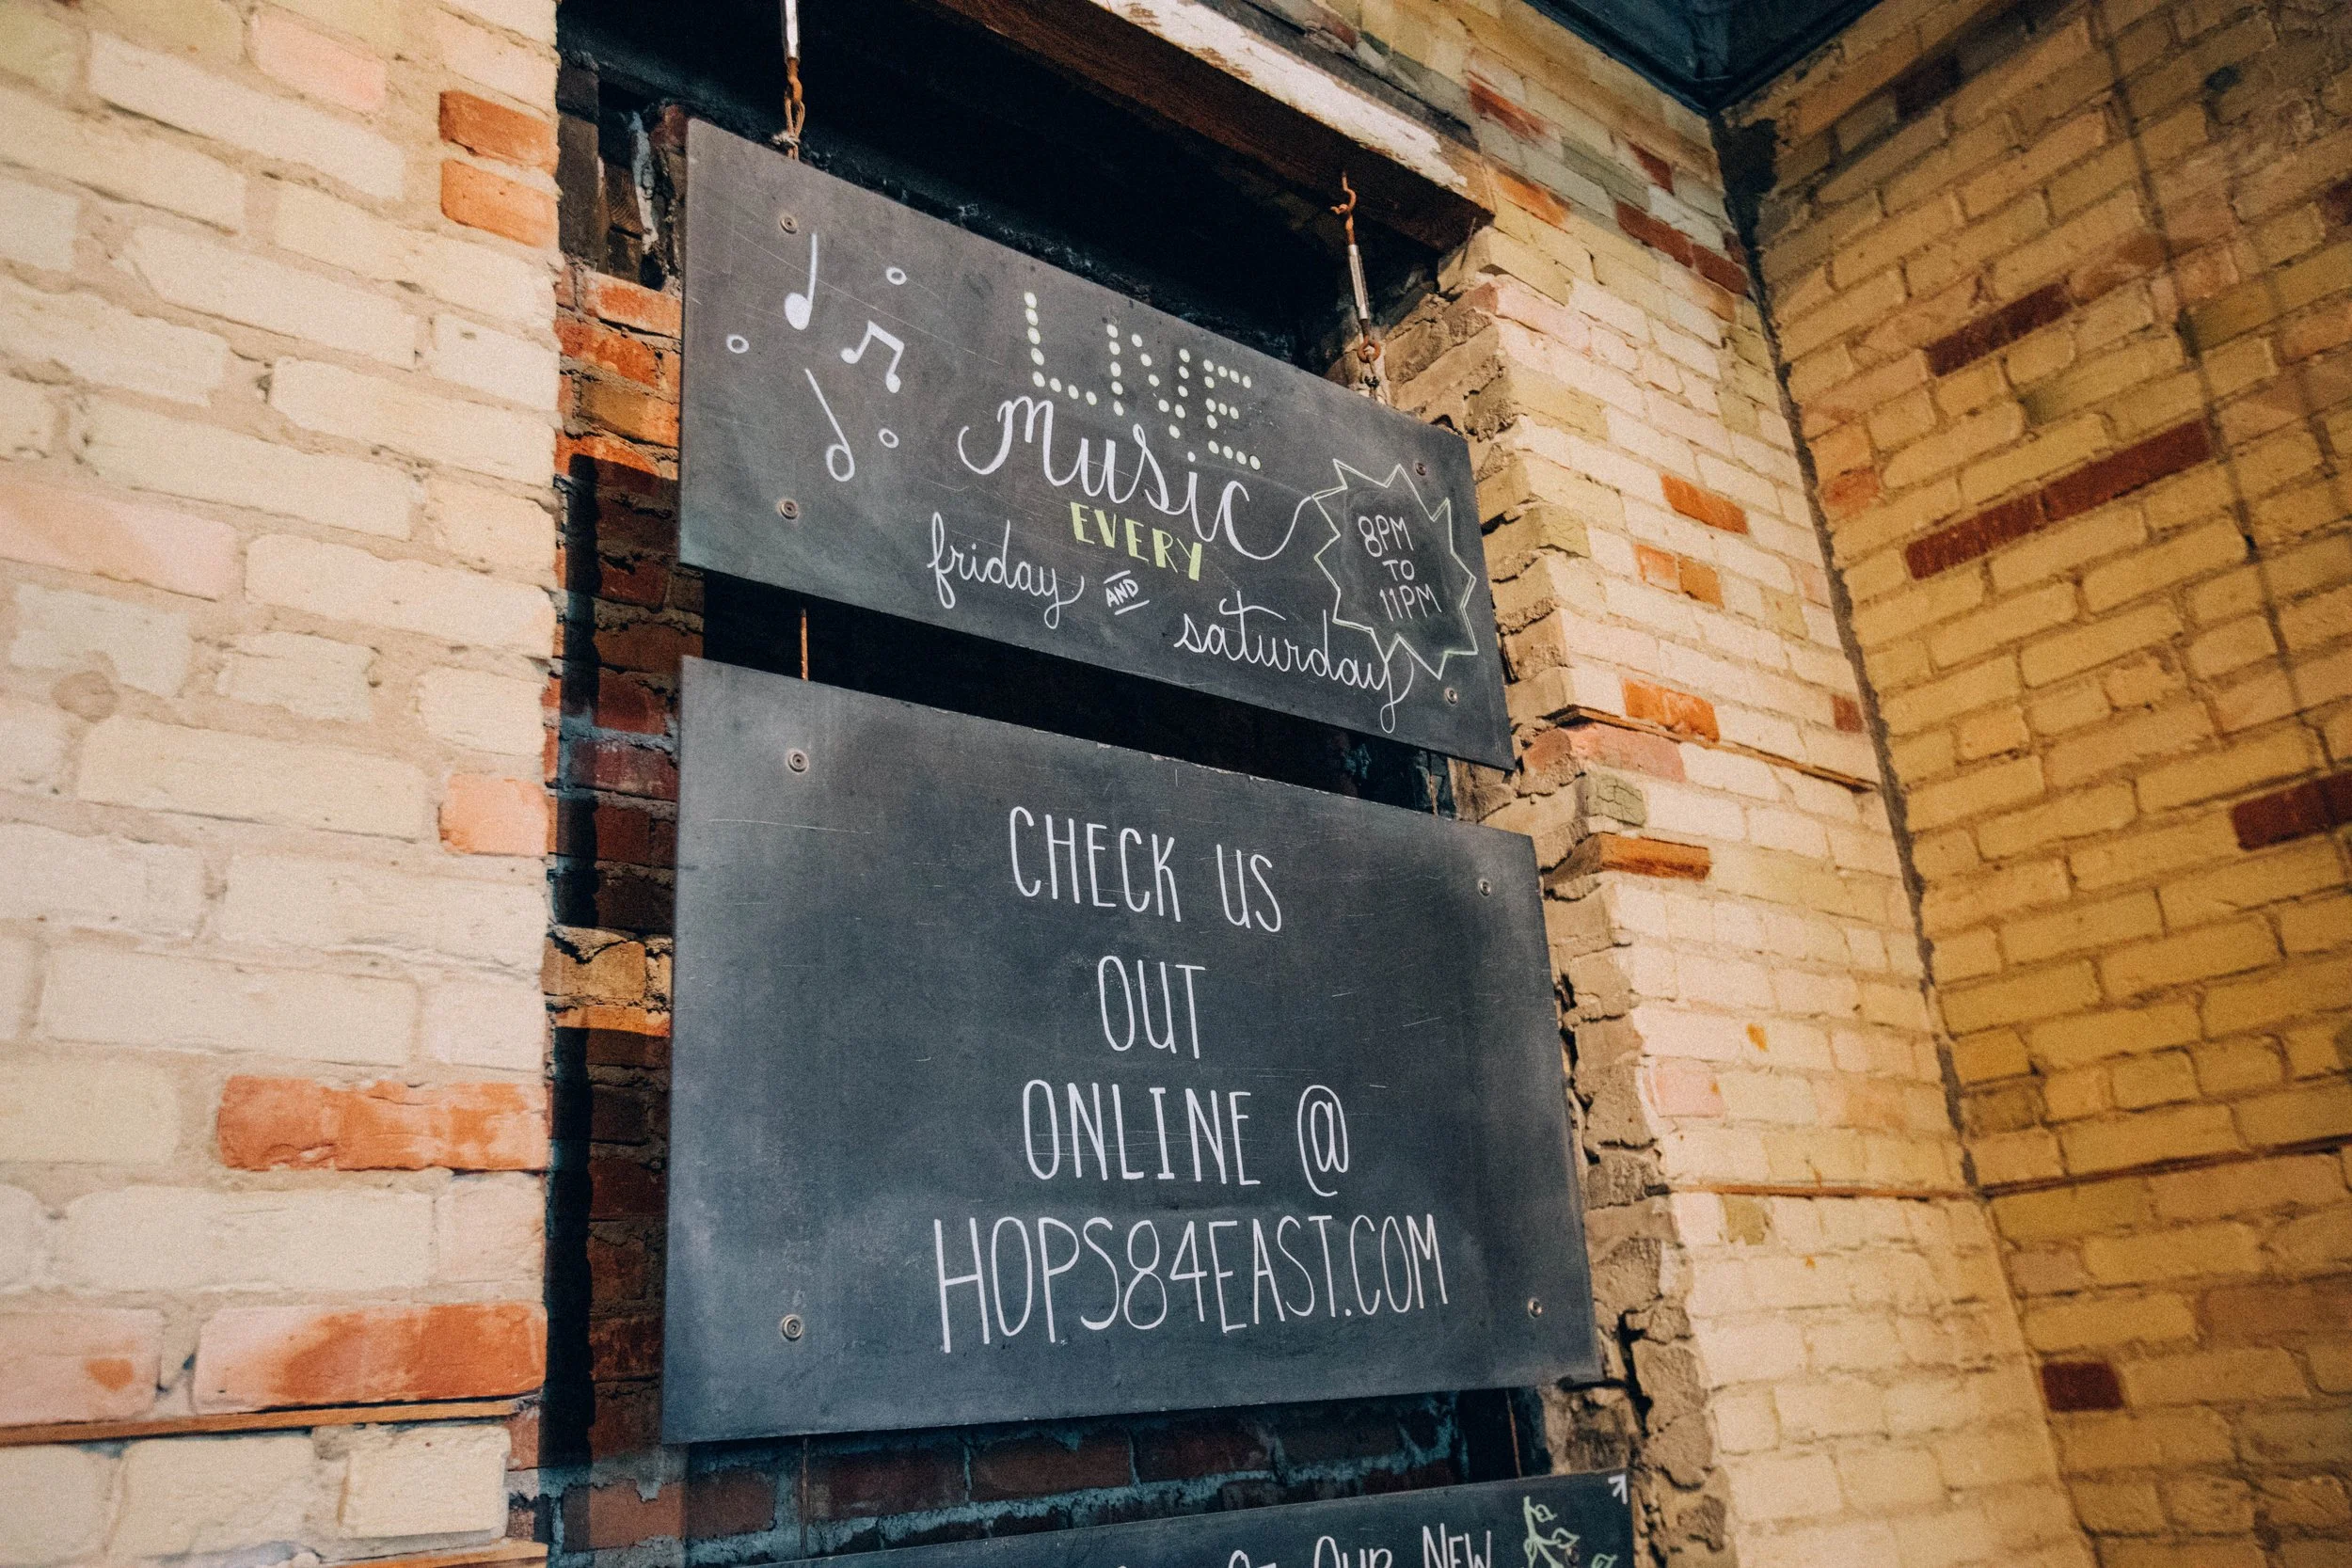 LIVE
music
EVERY
friday AND saturday
8PM
TO
11PM
CHECK US
OUT
ONLINE @
HOPS84EAST.COM
OF OUR NEW